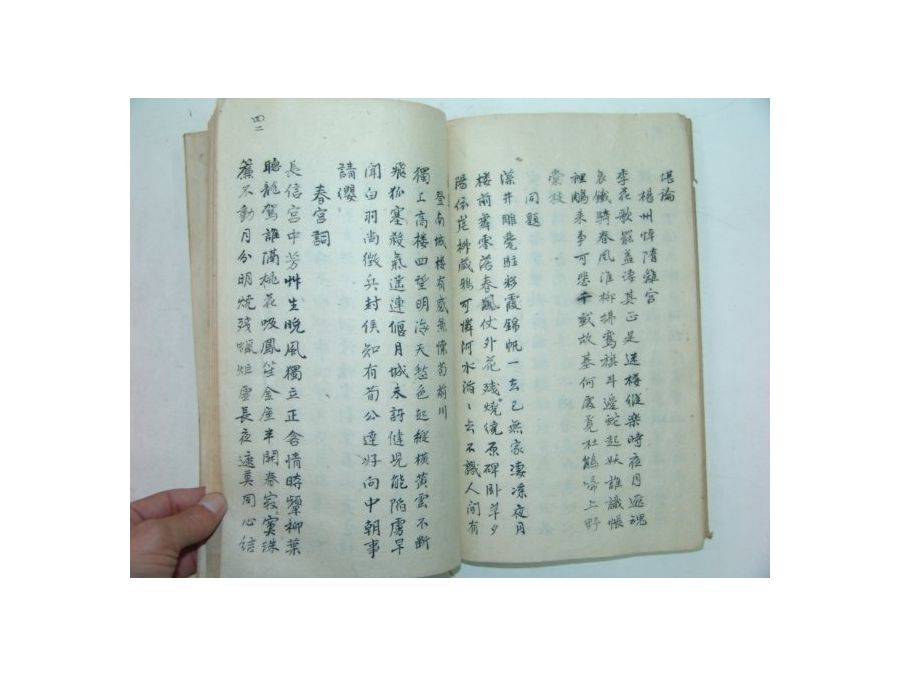 堪論
楊州悼隋離宮
李花歌罷益凄其正是迷樓縱樂時夜月返魂
哀鐵騎春風淮柳拂鸞旗斗邊蛇起妖誰識帳
裡鵬来事可悲千載故基何處覓杜鵑啼上野
棠枝
同題
藻井雕甍駐彩霞錦帆一去已無家凄涼夜月
樓前舞零落春風仗外花殘燒繞原碑卧草夕
陽依岸柳藏鴉可憐河水滔〻去不識人間有
登南城樓有感兼懐荀前川
獨上高楼四望明海天愁色起縱橫黄雲不断
飛狐塞殺氣遥連偃月城未訝健児能陷虜早
聞白羽尚徴兵封侯知有荀公達好向中朝事
請纓
春宮詞
長信宮中芳艸生晩風獨立正含情時顰柳葉
聴龍駕誰滿桃花吸鳳笙金屋半開春寂寞珠
簾不動月分明焼殘蠟炬靈長夜遮莫同心結
四二